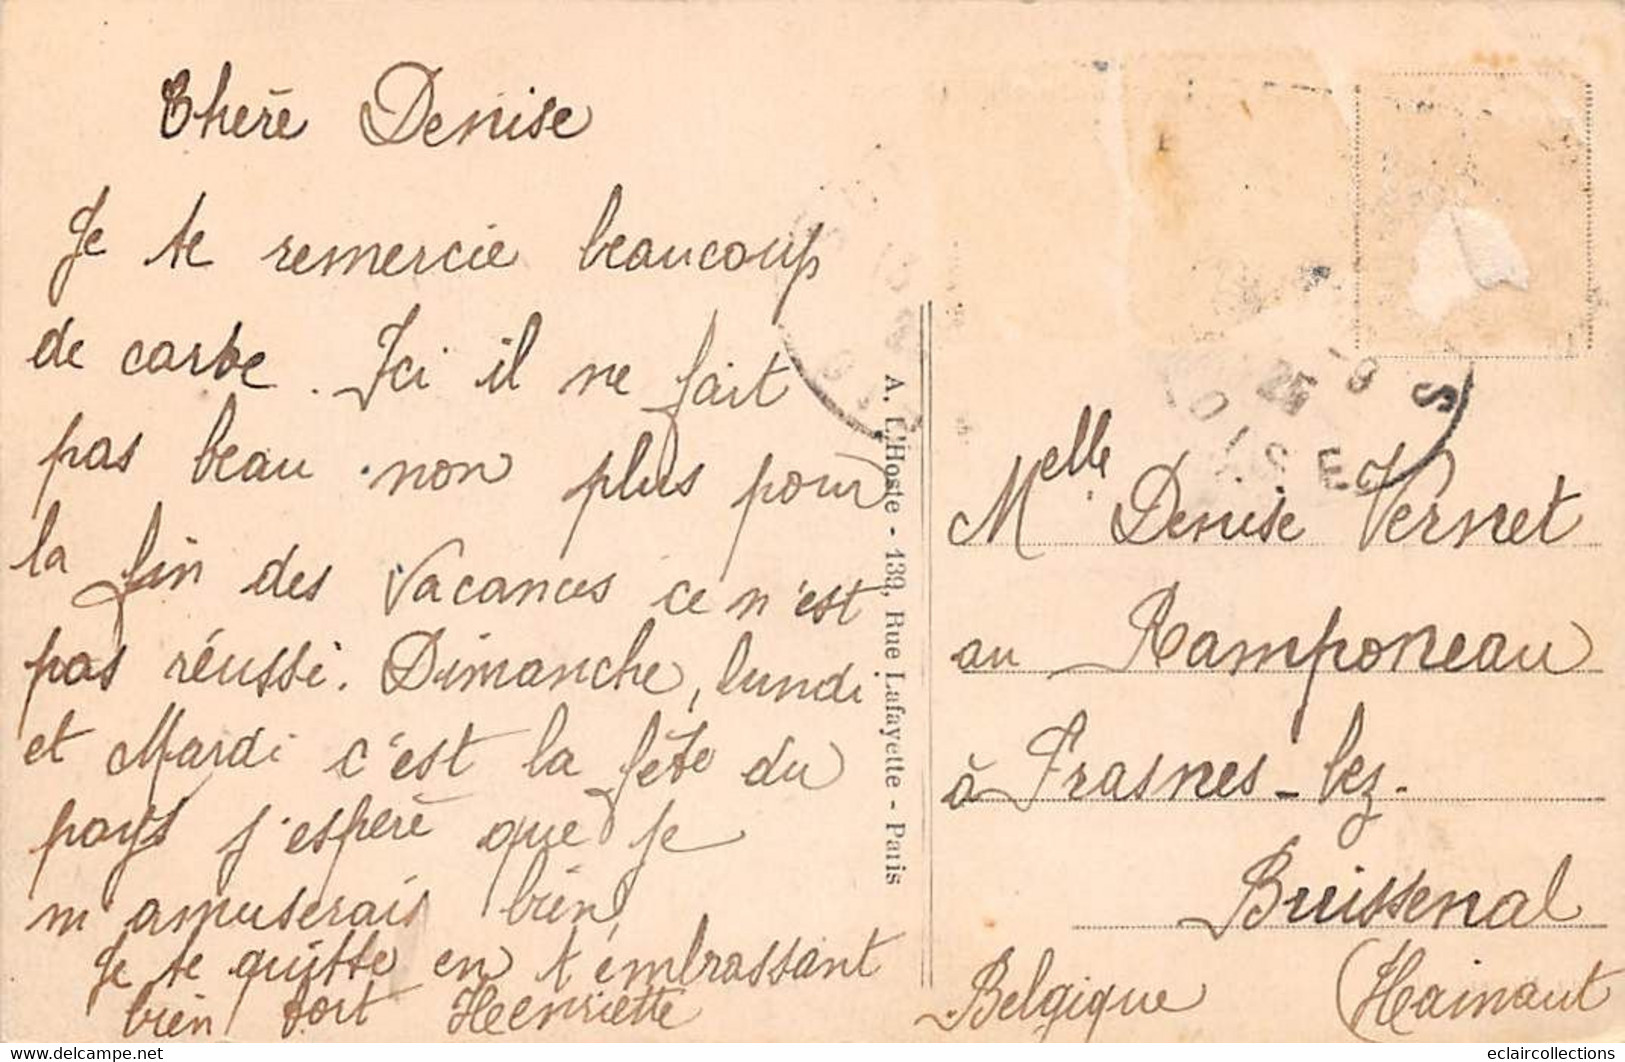 Chère Denise
Je te remercie beaucoup
de carte. Ici il ne fait
pas beau non plus pour
la fin des Vacances ce n'est
pas réussi. Dimanche, lundi
et Mardi c'est la fête du
pays j'espère que je
m'amuserais bien,
Je te quitte en t'embrassant
bien fort Henriette
A. L'Hoste - 139, Rue Lafayette - Paris
25 -9 S
OISE
Melle Denise Vernet
au Ramponeau
à Frasnes-lez-
Buissenal
Belgique (Hainaut
eclaircollections